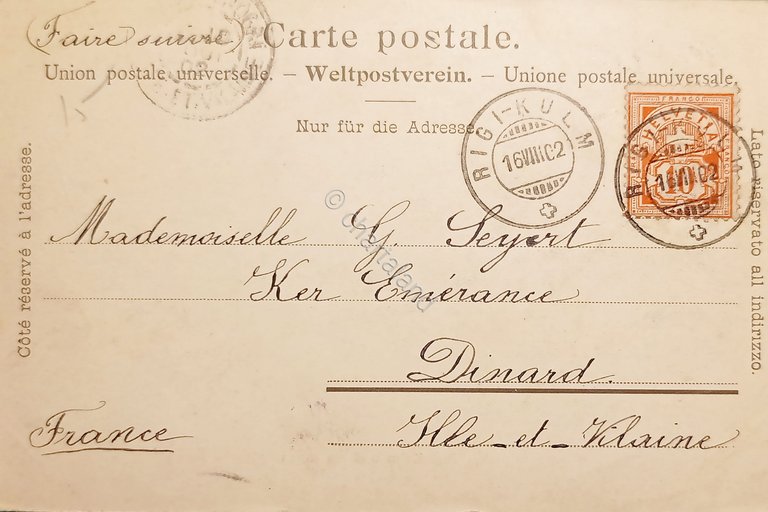 (Faire suivre) Carte postale.
Union postale universelle. – Weltpostverein. – Unione postale universale.
Nur für die Adresse.
RIGI-KULM
16 VIII 02
FRANCO
HELVETIA
10
16 VIII 02
Côté réservé à l'adresse.
Lato riservato all indirizzo.
Mademoiselle G. Seyort
Ker Emérance
Dinard.
France
Ille-et-Vilaine
© Chartaland